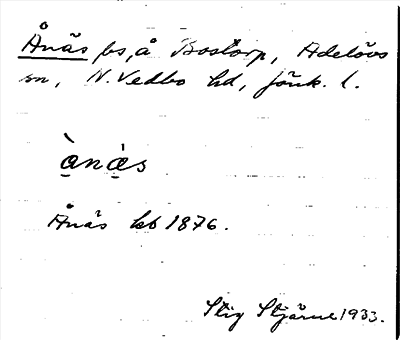 Ånäs fs, å Bostorp, Adelövs
sn, N. Vedbo hd, Jönk. l.
ànæ̀s
Ånäs kb 1876.
Stig Stjärne 1933.